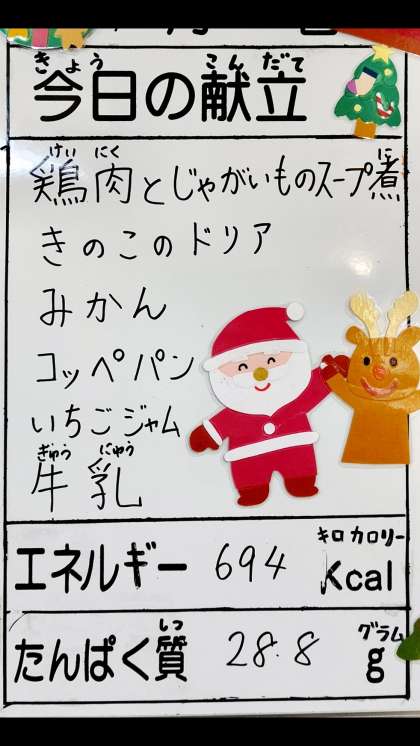 きょう こんだて
今日の献立
けいにく に
鶏肉とじゃがいものスープ煮
きのこのドリア
みかん
コッペパン
いちごジャム
ぎゅうにゅう
牛乳
キロカロリー
エネルギー 694 Kcal
しつ グラム
たんぱく質 28.8 g